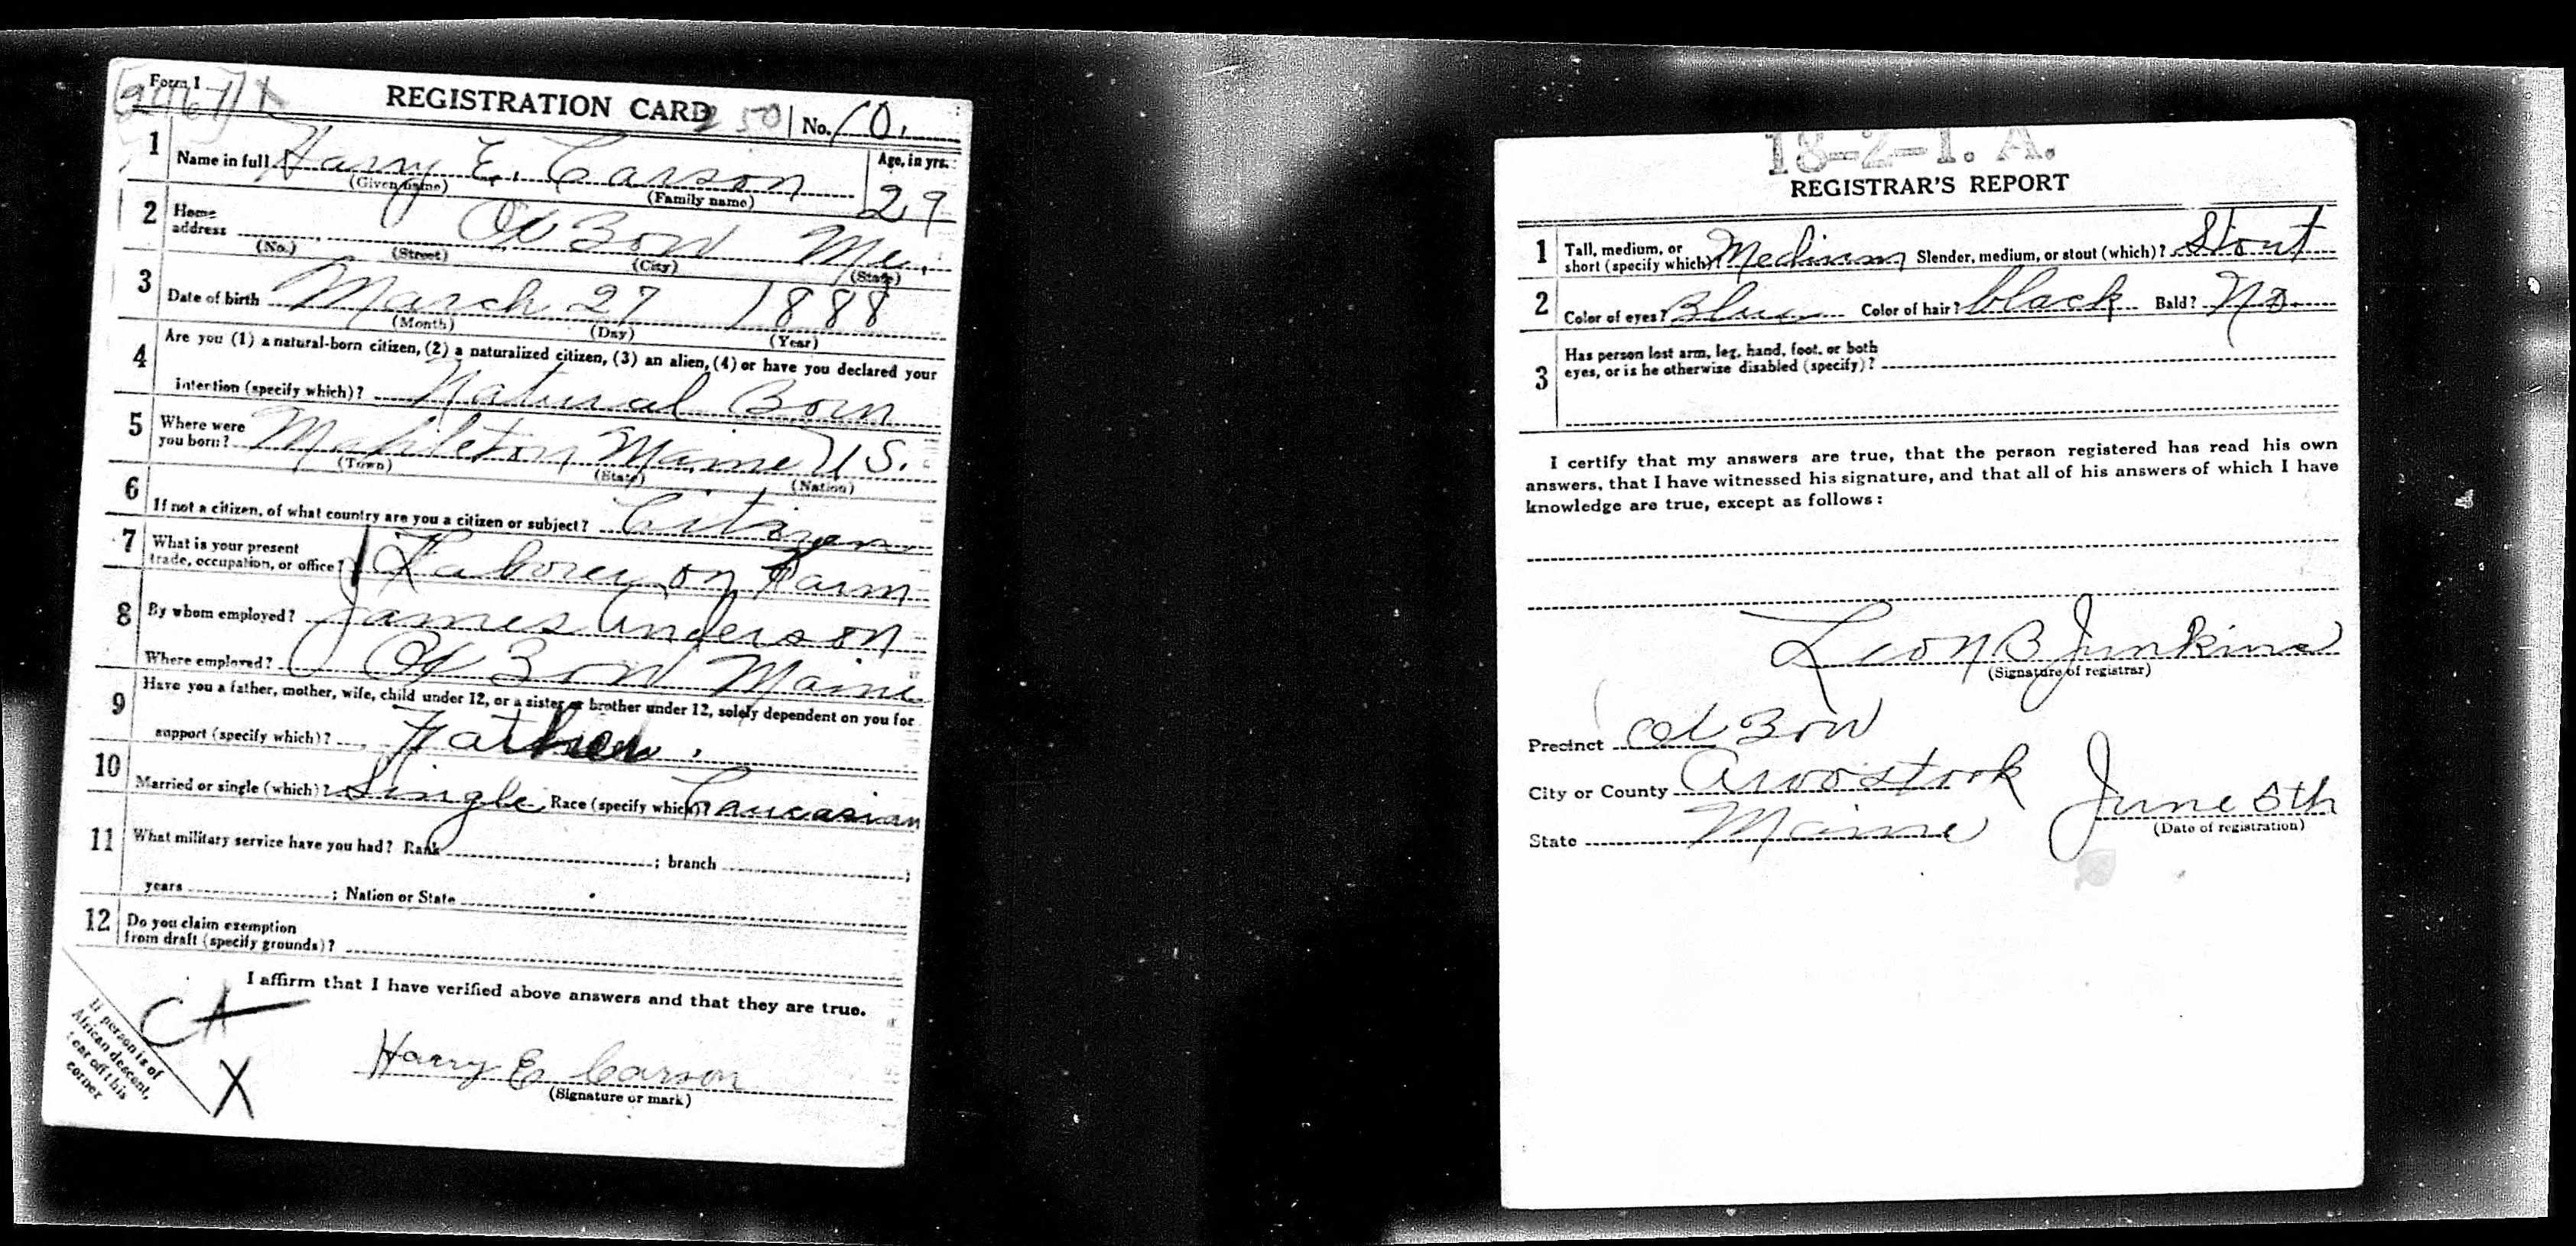 Form 1
REGISTRATION CARD 250 No. 10.
1 Name in full Harry E. Carson Age, in yrs. 29
(Given name) (Family name)
2 Home address Ox Bow Me.
(No.) (Street) (City) (State)
3 Date of birth March 27 1888
(Month) (Day) (Year)
4 Are you (1) a natural-born citizen, (2) a naturalized citizen, (3) an alien, (4) or have you declared your
intention (specify which)? Natural Born
5 Where were you born? Mapleton Maine U S.
(Town) (State) (Nation)
6 If not a citizen, of what country are you a citizen or subject? Citizen
7 What is your present
trade, occupation, or office? Laborer on Farm
8 By whom employed? James Anderson
Where employed? Ox Bow Maine
9 Have you a father, mother, wife, child under 12, or a sister or brother under 12, solely dependent on you for
support (specify which)? Father.
10 Married or single (which)? Single Race (specify which)? Caucasian
11 What military service have you had? Rank ; branch ;
years ; Nation or State
12 Do you claim exemption
from draft (specify grounds)?
I affirm that I have verified above answers and that they are true.
CA
X
If person is of
African descent,
tear off this
corner
Harry E Carson
(Signature or mark)
18-2-1. A.
REGISTRAR'S REPORT
1 Tall, medium, or
short (specify which)? Medium Slender, medium, or stout (which)? Stout
2 Color of eyes? Blue Color of hair? black Bald? No
3 Has person lost arm, leg, hand, foot, or both
eyes, or is he otherwise disabled (specify)?
I certify that my answers are true, that the person registered has read his own
answers, that I have witnessed his signature, and that all of his answers of which I have
knowledge are true, except as follows:
Leon B Junkins
(Signature of registrar)
Precinct Ox Bow
City or County Aroostook
State Maine
June 5th
(Date of registration)